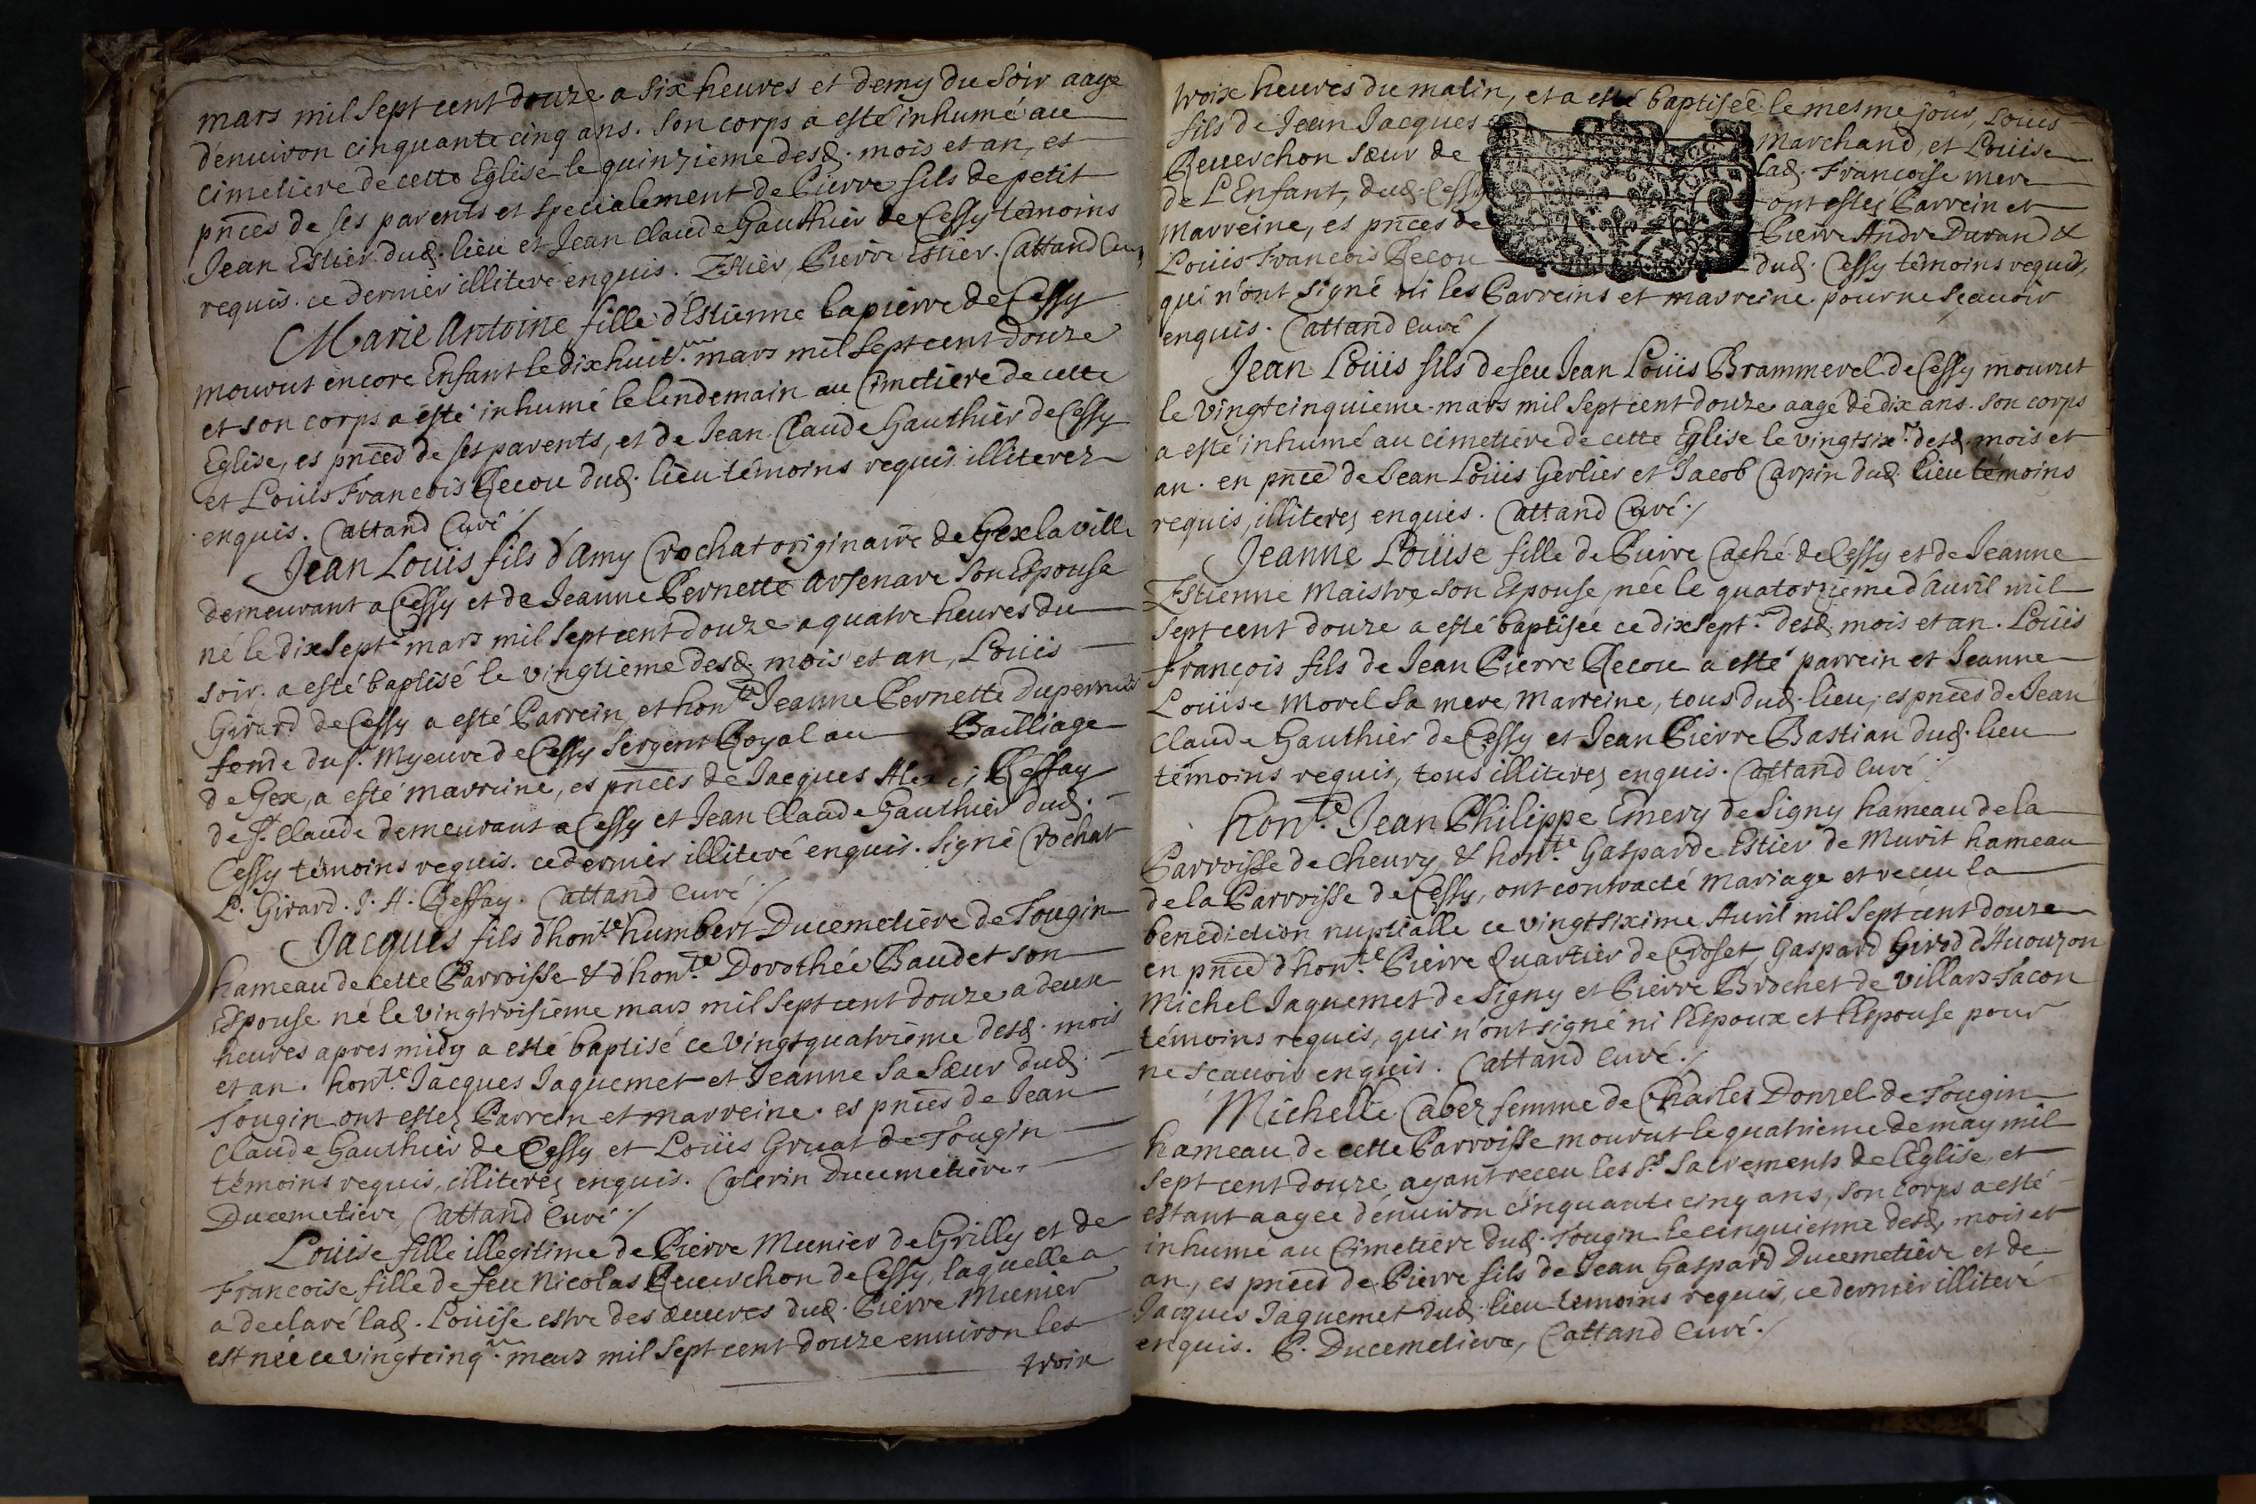 mars mil sept cent douze a six heures et demy du soir aagé
d'enuiron cinquante cinq ans. son corps a esté inhumé au
cimetiere de cette Eglise le quinzieme desd. mois et an, et
pnces de ses parents et specialement de Pierre fils de petit
Jean Estier dud. lieu et Jean Claude Gauthier de Cessy témoins
requis. ce dernier illiteré enquis. Estier, Pierre Estier. Cattand
Marie Antoine fille d'Estienne Lapierre de Cessy
mourut encore Enfant le dixhuit.me mars mil sept cent douze
et son corps a esté inhumé le lendemain au Cimetiere de cette
Eglise, es pnces de ses parents, et de Jean Claude Gauthier de Cessy
et Loüis François Recou dud. lieu témoins requis illiterez
enquis. Cattand Curé /
Jean Loüis fils d'Amy Crochat originaire de Gex la ville
demeurant a Cessy et de Jeanne Pernette Arsenare son Espouse
né le dix sept.e mars mil sept cent douze a quatre heures du
soir. a esté baptisé le vingtieme desd. mois et an, Loüis
Girard de Cessy a esté Parrein et hon.te Jeanne Pernette
feme du s.r Myeure de Cessy sergent Royal au Bailliage
de Gex, a esté marreine, es pnces de Jacques Reffay
de S.t Claude demeurant a Cessy et Jean Claude Gauthier dud.
Cessy témoins requis. ce dernier illiteré enquis. Signé Crochat
L. Girard. J. A. Reffay. Cattand Curé /
Jacques fils d'hon.te humbert Ducemetiere de Tougin
hameau de cette Parroisse & d'hon.te Dorothée Baudet son
Espouse né le vingtroisième mars mil sept cent douze a deux
heures apres midy a esté baptisé ce vingt quatrième desd. mois
et an. hon.te Jacques Jaquemet et Jeanne sa sœur dud.
Tougin ont estez Parrein et marreine. es pnces de Jean
Claude Gauthier de Cessy et Loüis Gruat de Tougin
témoins requis, illiterez enquis. Ducemetiere.
Ducemetiere, Cattand Curé /
Loüise fille illegitime de Pierre Meunier de Grilly et de
Françoise fille de feu Nicolas Reuerchon de Cessy, laquelle a
a declaré lad. Loüise estre des œuures dud. Pierre Meunier
est née ce vingt cinq.me mars mil sept cent douze enuiron les
troix
troix heures du matin, et a esté baptisée le mesme jour, Loüis
fils de Jean Jacques Marchand, et Loüise
Reuerchon sœur de lad. Françoise mere
de L'Enfant, dud. Cessy ont estéz Parrein et
Marreine, es pnces de Pierre André Durand &
Loüis François Recou dud. Cessy témoins requis,
qui n'ont signé ni les Parreins et marreine pour ne sçauoir
enquis. Cattand Curé /
Jean Loüis fils de feu Jean Loüis Brammerel de Cessy mourut
le vingt cinquieme mars mil sept cent douze aagé de dix ans. son corps
a esté inhumé au cimetiere de cette Eglise le vingt six.e desd. mois et
an. en pnce de Jean Loüis Gerlier et Jacob Carpin dud. lieu témoins
requis, illiterez enquis. Cattand Curé /
Jeanne Loüise fille de Pierre Caché de Cessy et de Jeanne
Estienne Maistre son Espouse, née le quatorzieme d'auril mil
sept cent douze a esté baptisée ce dix sept.e desd. mois et an. Loüis
François fils de Jean Pierre Recou a esté parrein et Jeanne
Loüise Morel sa mere, Marreine, tous dud. lieu, es pnces de Jean
Claude Gauthier de Cessy et Jean Pierre Bastian dud. lieu
témoins requis, tous illiterez enquis. Cattand Curé /
hon.te Jean Philippe Emery de Signy hameau de la
Parroisse de Cheury & hon.te Gasparde Estier de Murit hameau
de la Parroisse de Cessy, ont contracté Mariage et receu la
benediction nuptialle ce vingt sixime Auril mil sept cent douze
en pnce d'hon.te Pierre Quartier de Croset, Gaspard Girod d'Auouzon
Michel Jaquemet de Signy et Pierre Brochet de Villars Tacon
témoins requis, qui n'ont signé ni l'Espoux et l'Espouse pour
ne sçauoir enquis. Cattand Curé /
Michelle Cabez femme de Charles Donzel de Tougin
hameau de cette Parroisse mourut le quatrieme de may mil
sept cent douze ayant receu les s.ts sacrements de l'Eglise, et
estant aagée d'enuiron cinquante cinq ans, son corps a esté
inhumé au Cimetiere dud. Tougin le cinquieme desd. mois et
an, es pnces de Pierre fils de Jean Gaspard Ducemetiere et de
Jacques Jaquemet dud. lieu temoins requis, ce dernier illiteré
enquis. P. Ducemetiere, Cattand Curé /